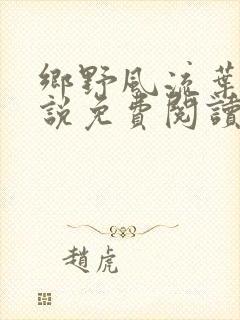 鄉野風流葉
說免費閱讀
趙虎